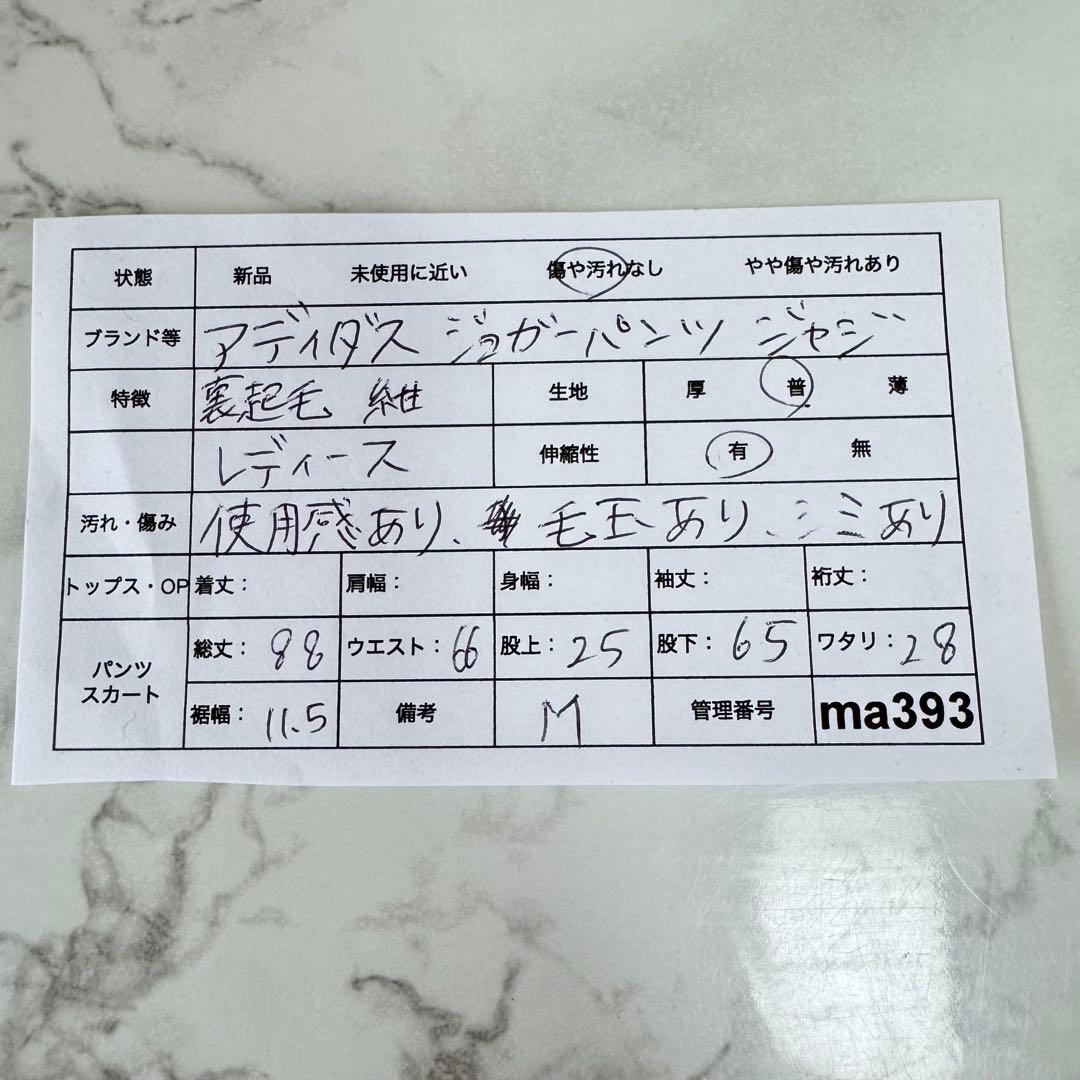 状態 新品 未使用に近い 傷や汚れなし やや傷や汚れあり
ブランド等 アディダス ジョガーパンツ ジャジ
特徴 裏起毛 生地 厚 普 薄
レディース 伸縮性 有 無
汚れ・傷み 使用感あり、毛玉あり、シミあり
トップス・OP 着丈： 肩幅： 身幅： 袖丈： 裄丈：
パンツ スカート 総丈：88 ウエスト：66 股上：25 股下：65 ワタリ：28
裾幅：11.5 備考 M 管理番号 ma393